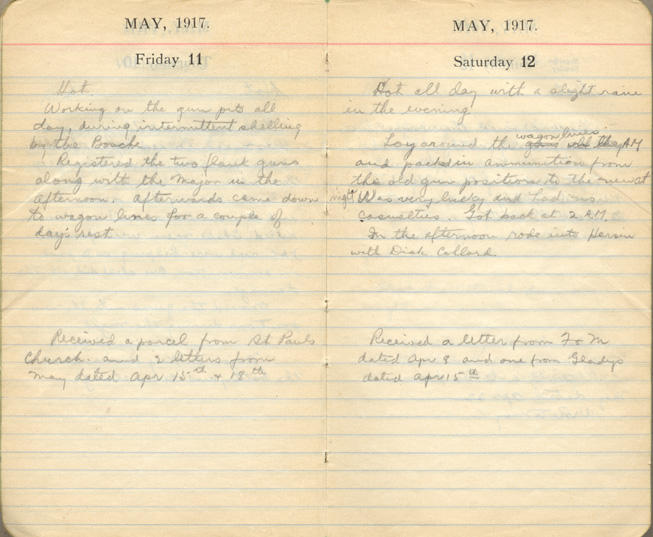 MAY, 1917.
Friday 11
Hot.
Working on the gun pits all
day, during intermittent shelling
by the Bosche.
Registered the two flank guns
along with the Major in the
afternoon. Afterwards came down
to wagon lines for a couple of
day's rest
Received a parcel from St Pauls
Church. and 2 letters from
May dated Apr 15th & 18th
MAY, 1917.
Saturday 12
Hot all day with a slight rain
in the evening
wagon lines.
Lay around the guns all the AM
and packed in ammunition from
the old gun positions to the new at
night Was very lucky and had no
casualties. Got back at 2 AM.
In the afternoon rode into Hersin
with Dick Collard.
Received a letter from F & M
dated Apr 8 and one from Gladys
dated Apr 15th